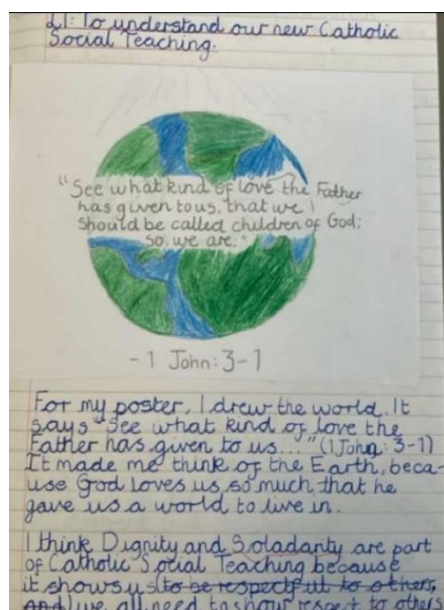 LI: To understand our new Catholic
Social Teaching.
"See what kind of love the Father
has given to us, that we
should be called children of God;
so we are."
- 1 John: 3-1
For my poster, I drew the world. It
says "See what kind of love the
Father has given to us..." (1 John: 3-1)
It made me think of the Earth, beca-
use God loves us so much that he
gave us a world to live in.
I think Dignity and Soladarity are part
of Catholic Social Teaching because
it shows us to be respectful to others,
and we all need to show respect to others